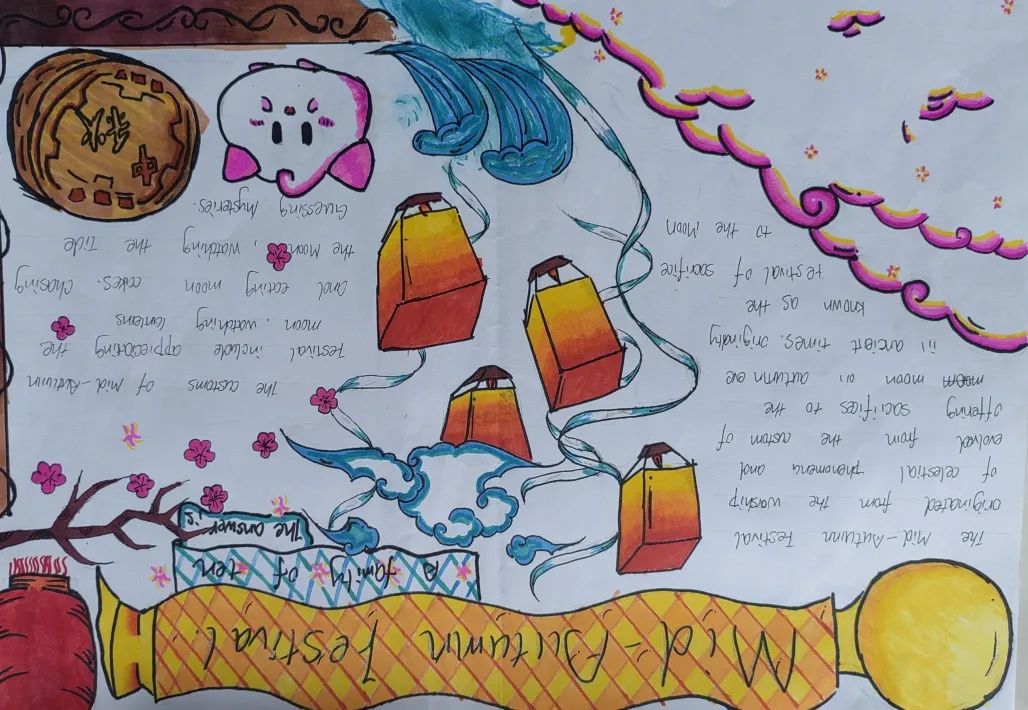 Mid-Autumn Festival.
A family of ten
The answer is
The Mid-Autumn Festival
originated from the worship
of celestial phenomena and
evolved from the custom of
offering sacrifices to the
moon on autumn eve
in ancient times. originaty
known as the
Festival of sacrifice
to the Moon
The customs of Mid-Autumn
Festival include appreciating the
moon , watching lanterns
and eating moon cakes. chasing
the Moon , watching the Tide
Guessing Mysteries.
中